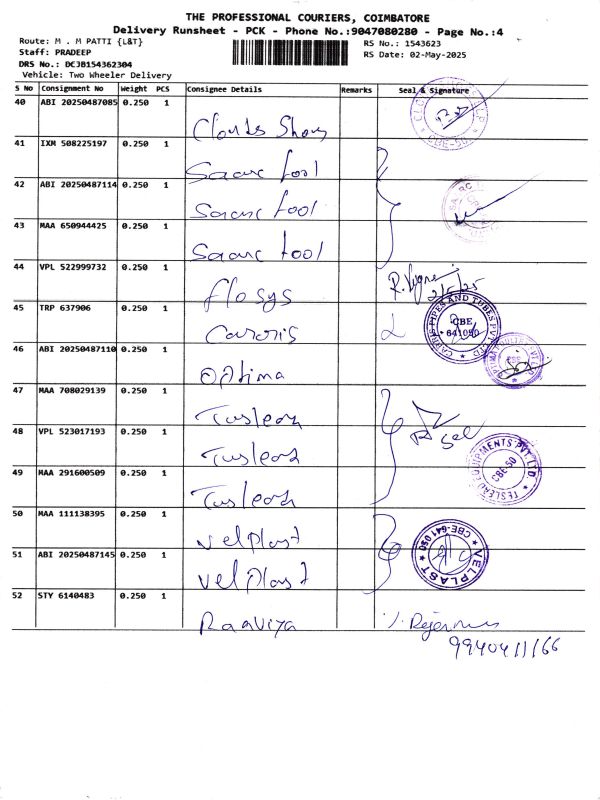 THE PROFESSIONAL COURIERS, COIMBATORE
Delivery Runsheet - PCK - Phone No.:9047080280 - Page No.:4
Route: M . M PATTI {L&T}
RS No.: 1543623
Staff: PRADEEP
RS Date: 02-May-2025
DRS No.: DCJB154362304
Vehicle: Two Wheeler Delivery
S No Consignment No Weight PCS Consignee Details Remarks Seal & Signature
40 ABI 20250487085 0.250 1
CBE-50
41 IXM 508225197 0.250 1
Saarc tool
42 ABI 20250487114 0.250 1
Saarc tool
43 MAA 650944425 0.250 1
Saarc tool
44 VPL 522999732 0.250 1
flosys
2/5/25
45 TRP 637906 0.250 1
PIPES AND TUBES PVT LTD
CBE
641050
46 ABI 20250487110 0.250 1
Optima
47 MAA 708029139 0.250 1
48 VPL 523017193 0.250 1
TESLEAD EQUIPMENTS PVT. LTD.
CBE-50
49 MAA 291600509 0.250 1
50 MAA 111138395 0.250 1
velplast
VELPLAST
CBE-641 050
51 ABI 20250487145 0.250 1
velplast
52 STY 6140483 0.250 1
Raaviya